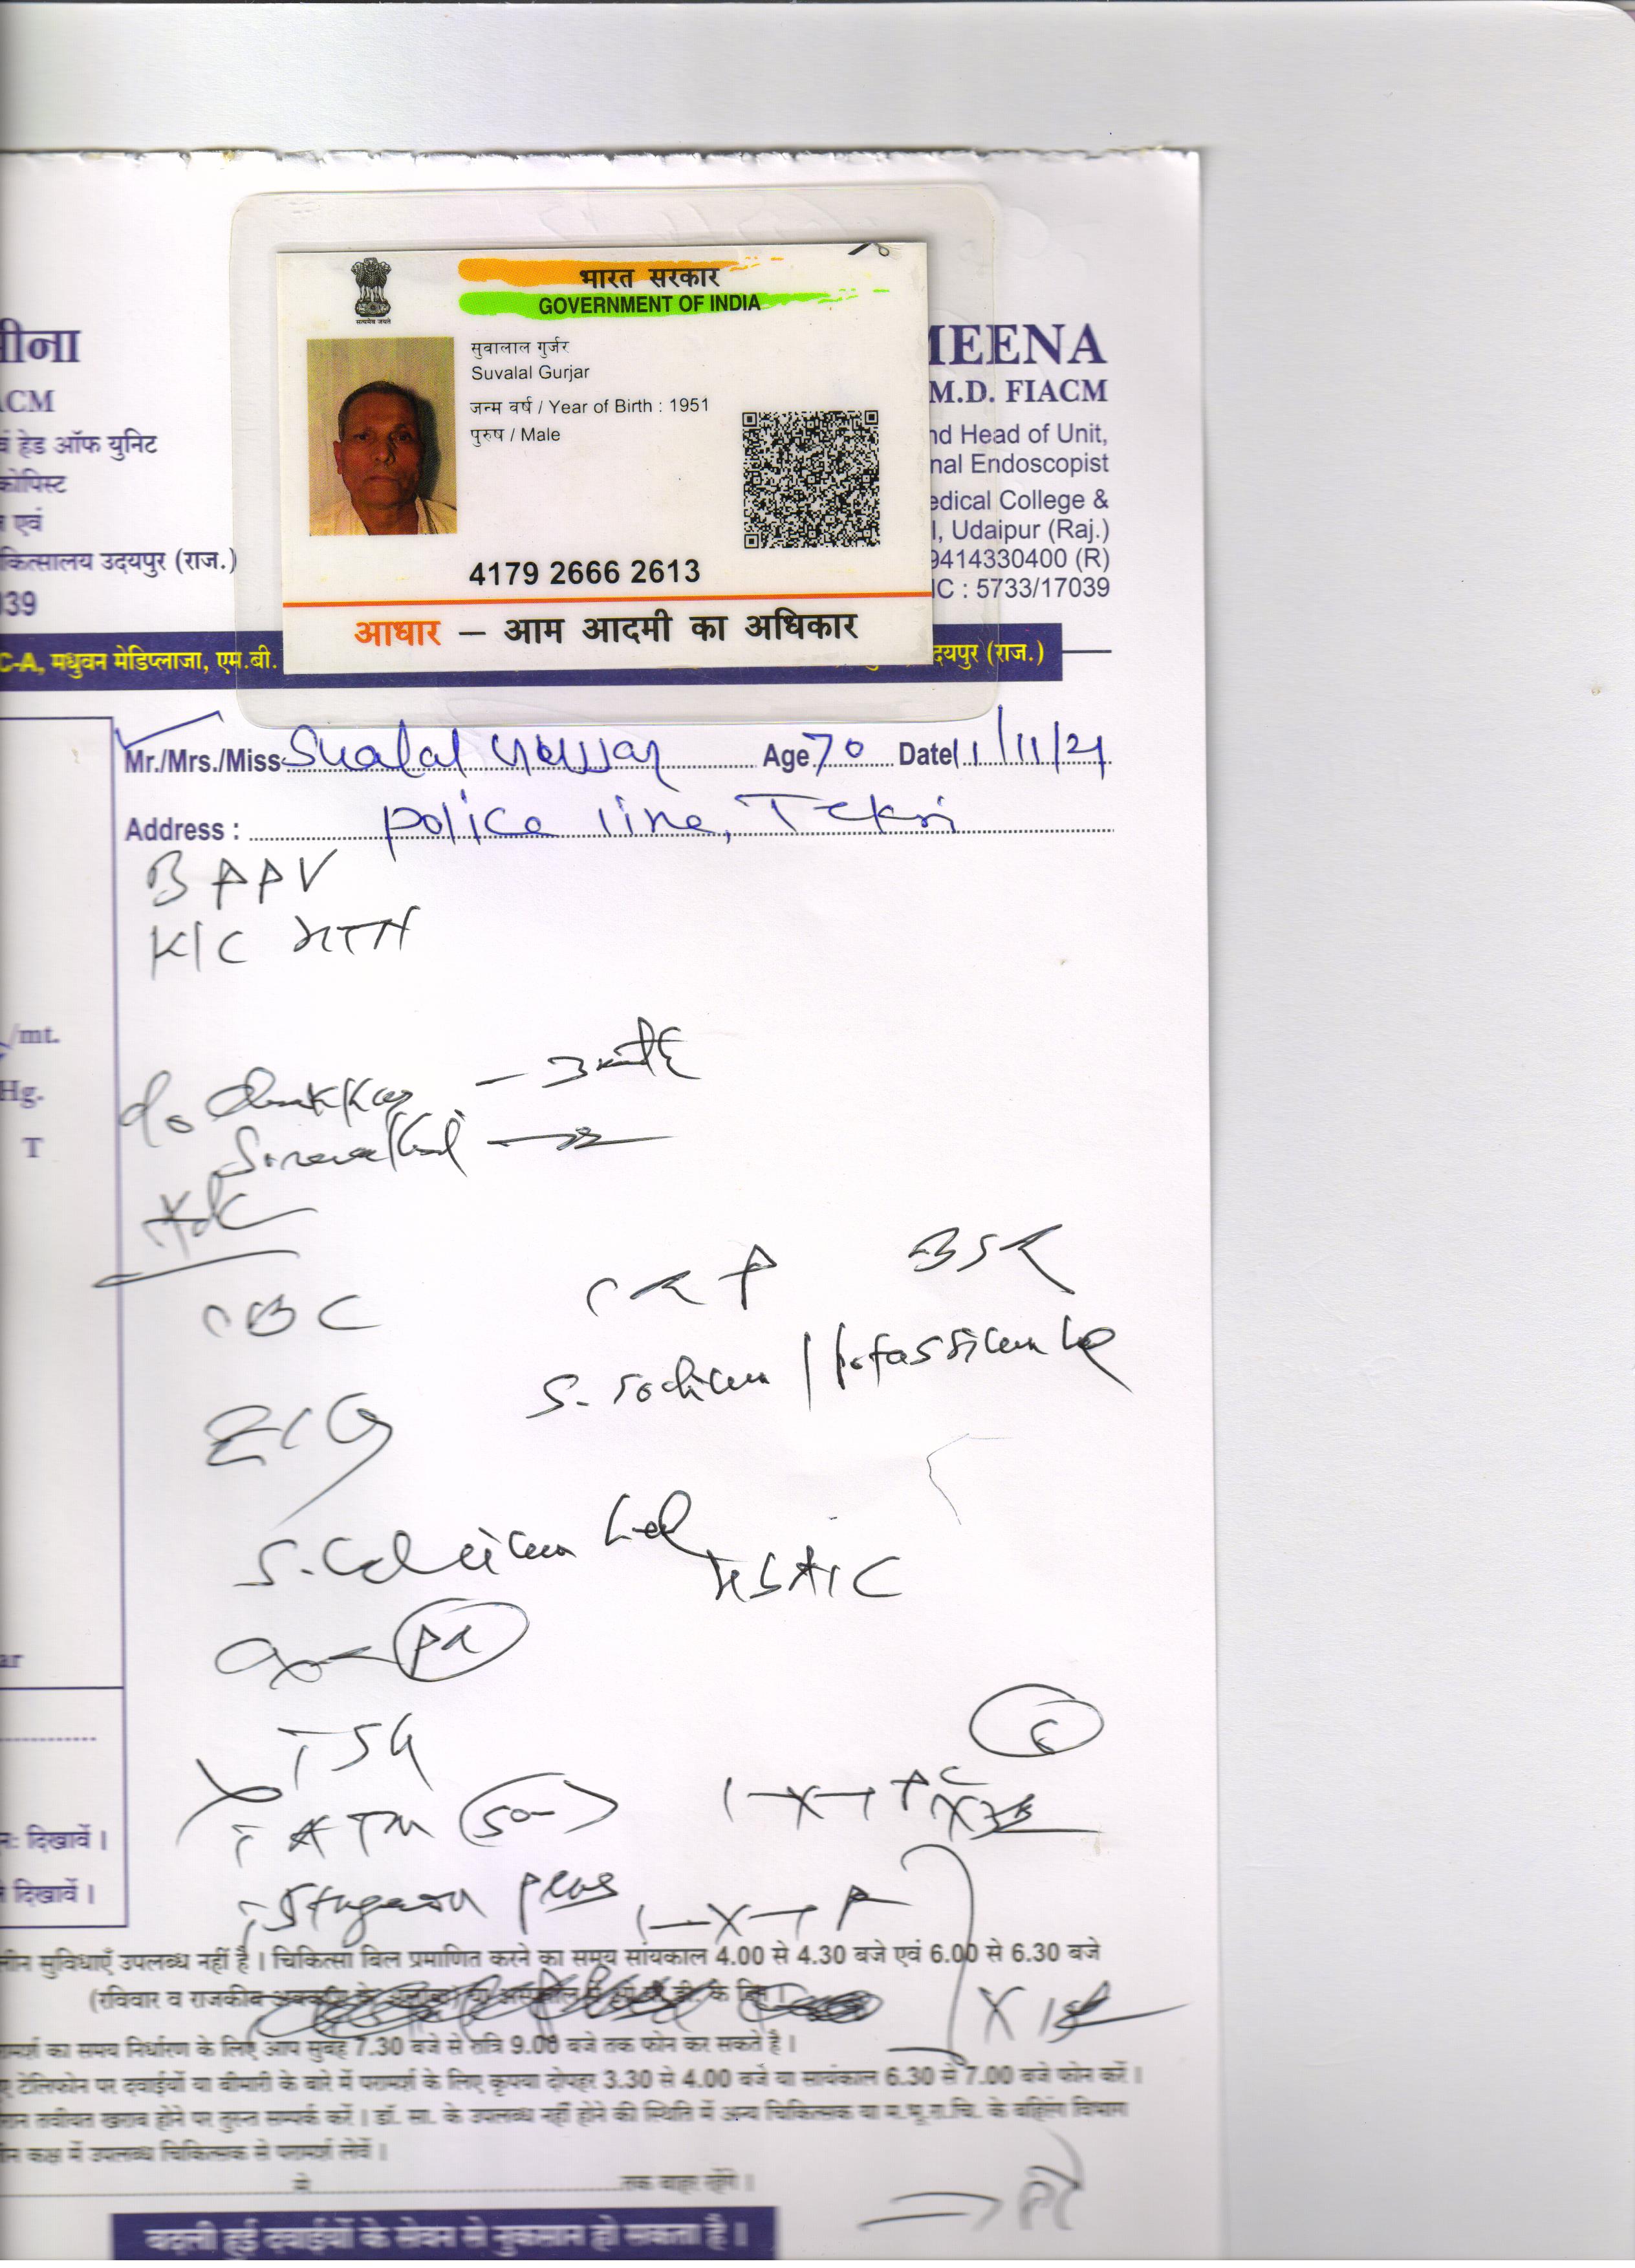 भारत सरकार
GOVERNMENT OF INDIA
सुवालाल गुर्जर
Suvalal Gurjar
जन्म वर्ष / Year of Birth : 1951
पुरुष / Male
4179 2666 2613
आधार – आम आदमी का अधिकार
ीना
ACM
वं हेड ऑफ युनिट
कोपिस्ट
एवं
कित्सालय उदयपुर (राज.)
039
MEENA
M.D. FIACM
nd Head of Unit,
nal Endoscopist
edical College &
l, Udaipur (Raj.)
9414330400 (R)
IC : 5733/17039
C-A, मधुवन मेडिप्लाजा, एम.बी.
दयपुर (राज.)
Mr./Mrs./Miss Sualal Age 70 Date 11/11/21
Address : police line, Tekri
BPPV
K/C HTN
/mt.
Hg.
T
c/o Chakkar
CBC CRP BSR
S. Sodium / Potassium
ECG
S. Calcium
HbA1C
ar
ATM (50)
1-X-1
Stugeron plus 1-X-1
नः दिखावें।
दिखावें।
सुविधाएँ उपलब्ध नहीं है। चिकित्सा बिल प्रमाणित करने का समय सांयकाल 4.00 से 4.30 बजे एवं 6.00 से 6.30 बजे
(रविवार व राजकीय के दिन।
का समय निर्धारण के लिए आप सुबह 7.30 बजे से रात्रि 9.00 बजे तक फोन कर सकते है।
टेलिफोन पर दवाईयों या बीमारी के बारे में परामर्श के लिए कृपया दोपहर 3.30 से 4.00 बजे या सायंकाल 6.30 से 7.00 बजे फोन करें।
तबीयत खराब होने पर तुरन्त सम्पर्क करें। डॉ. सा. के उपलब्ध नहीं होने की स्थिति में अन्य चिकित्सक या म.भू.रा.चि. के बहिरंग विभाग
कक्ष में उपलब्ध चिकित्सक से परामर्श लेवें।
से तक बाहर रहेंगे।
बदली हुई दवाईयों के सेवन से नुकसान हो सकता है।